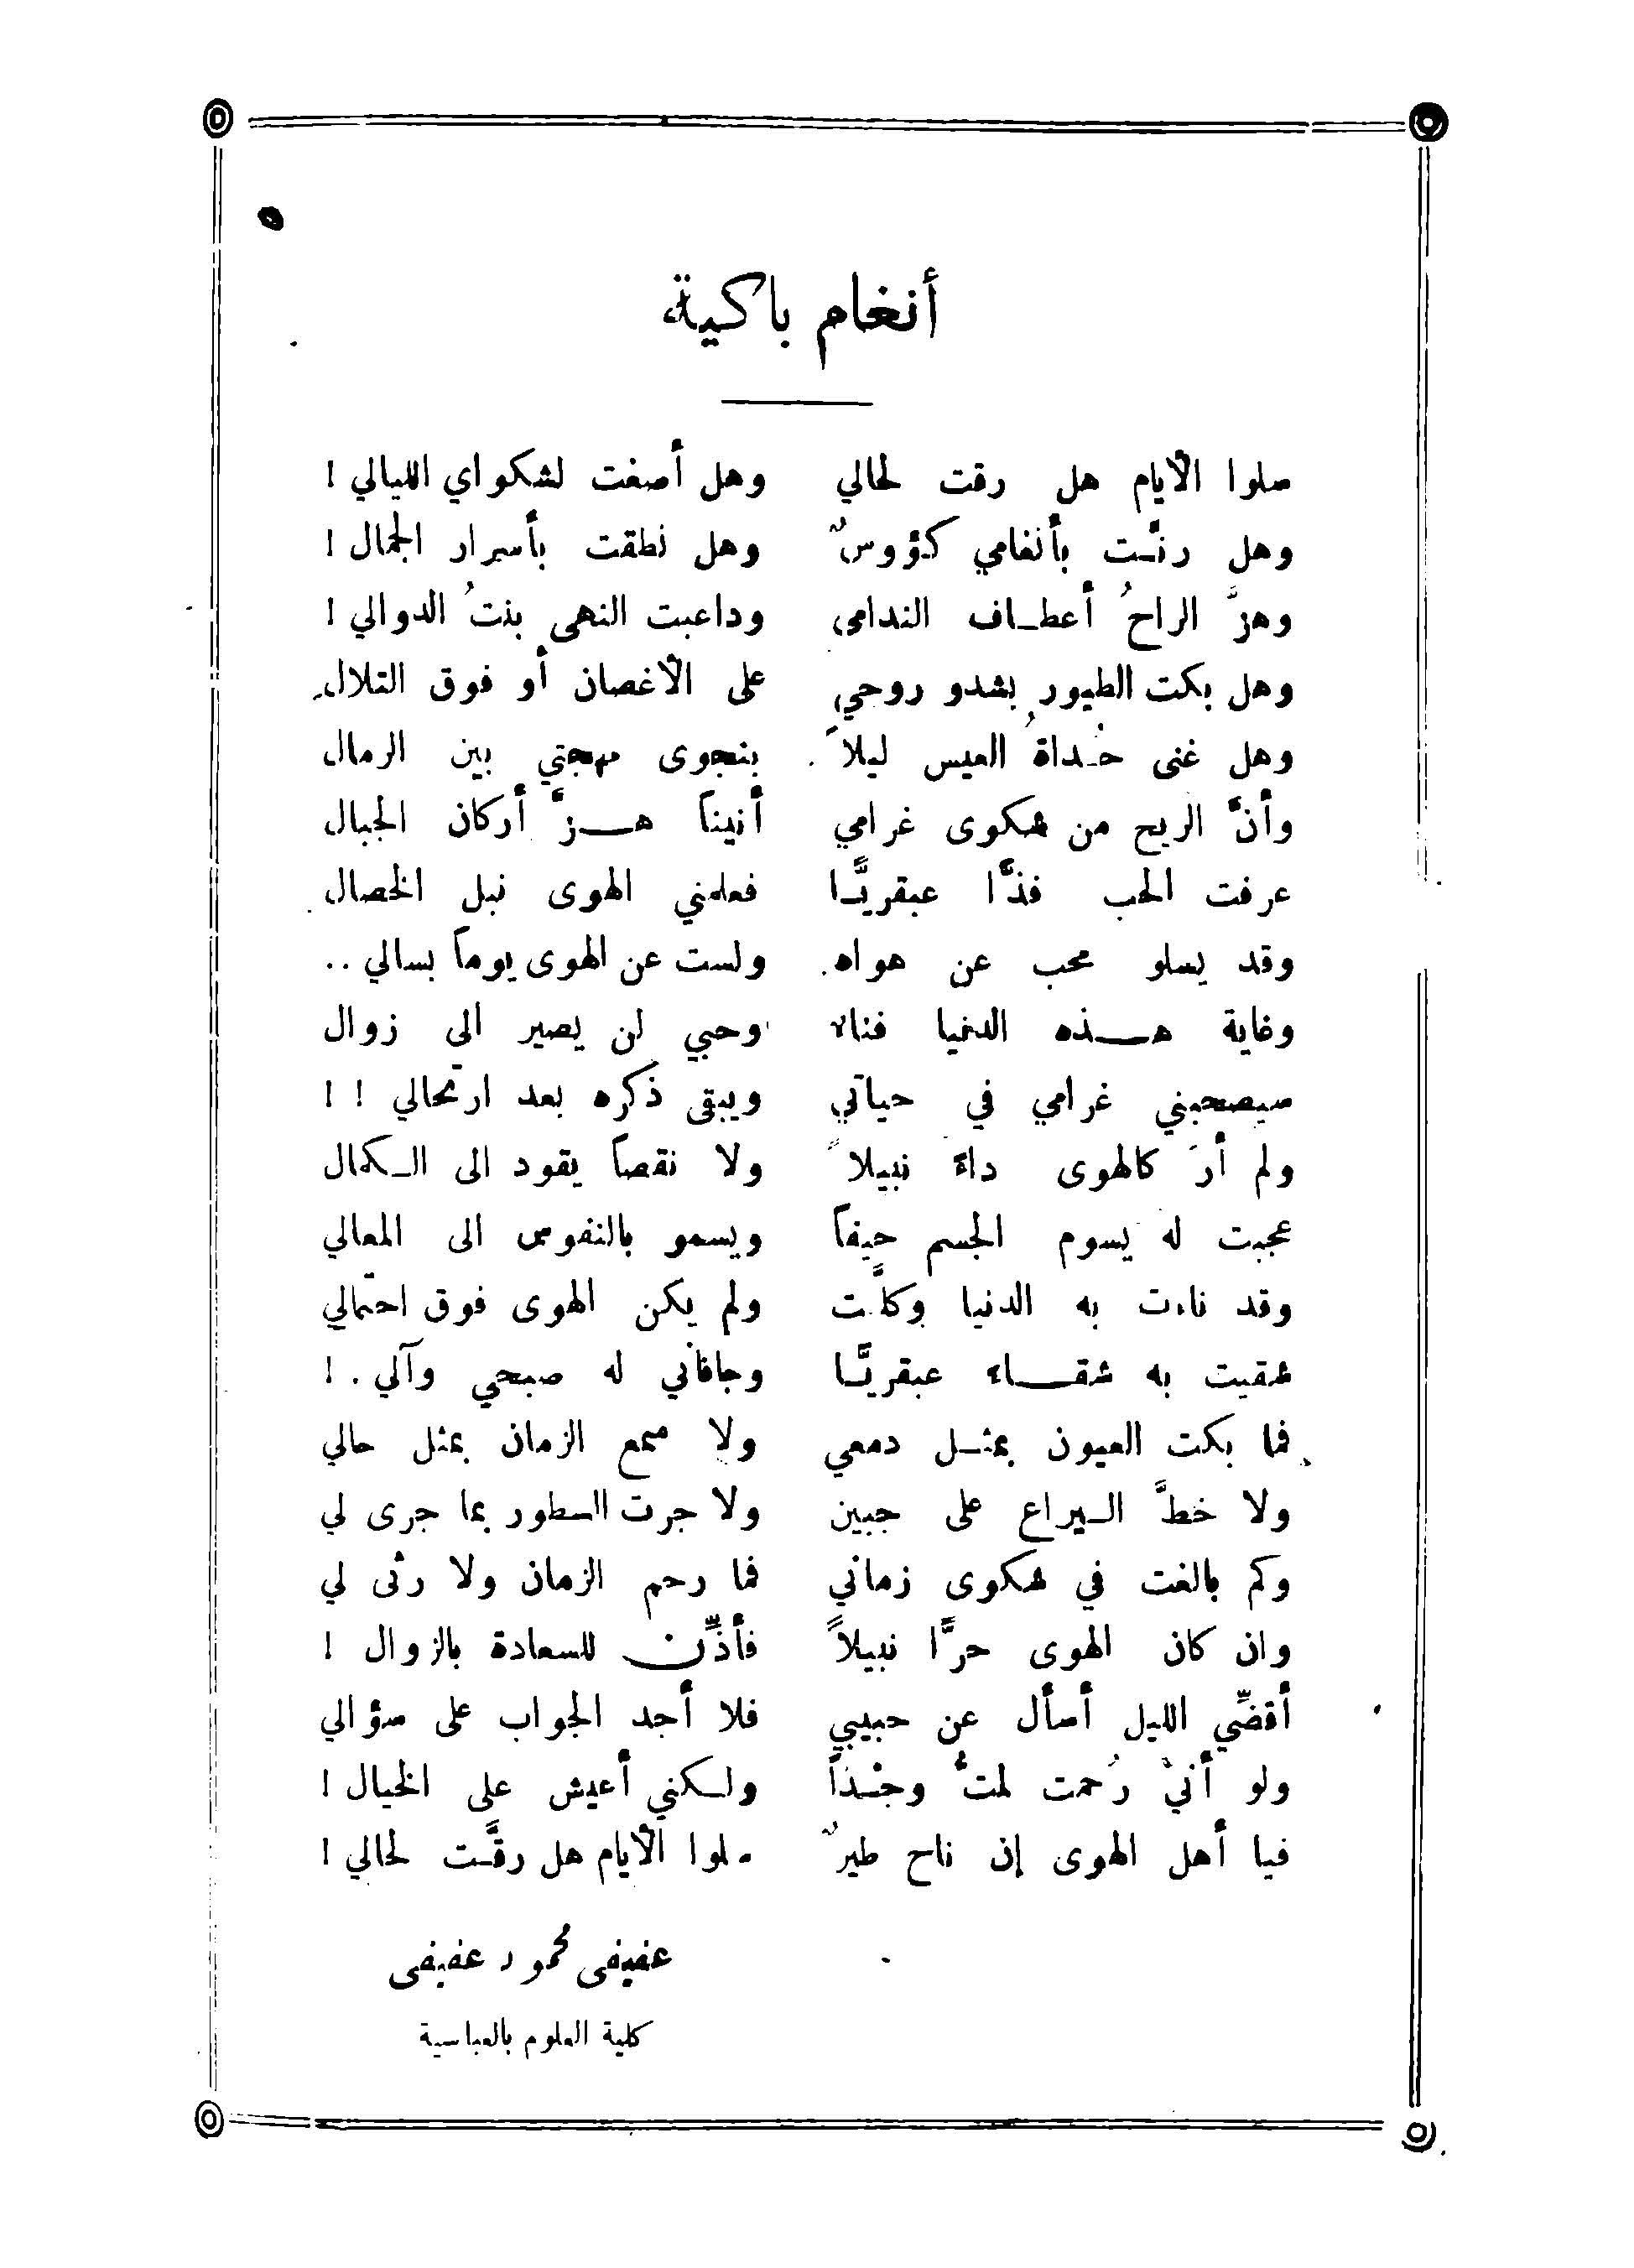 أنغام باكية
سلوا الأيام هل رقت لحالي وهل أصغت لشكواي الليالي !
وهل رنَّـت بأنغامي كؤوسٌ وهل نطقت بأسرار الجمال !
وهزَّ الراحُ أعطـاف الندامى وداعبت النهى بنتُ الدوالي !
وهل بكت الطيور بشدو روحي على الأغصان أو فوق التلال
وهل غنى حُـداةُ العيس ليلاً بنجوى مهجتي بين الرمال
وأنَّ الريح من شكوى غرامي أنيناً هــزَّ أركان الجبال
عرفت الحب فذًّا عبقريًّـا فعلمني الهوى نبل الخصال
وقد يسلو محب عن هواه ولست عن الهوى يوماً بسالي ..
وغاية هــذه الدنيا فناء وحبي لن يصير الى زوال
سيصحبني غرامي في حياتي ويبقى ذكره بعد ارتحالي ! !
ولم أرَ كالهوى داءً نبيلاً ولا نقصاً يقود الى الـكمال
عجبت له يسوم الجسم حيفاً ويسمو بالنفوس الى المعالي
وقد ناءت به الدنيا وكلَّت ولم يكن الهوى فوق احتمالي
شقيت به شقــاء عبقريًّـا وجافاني له صبحي وآلي . !
فما بكت العيون بمثـل دمعي ولا سمع الزمان بمثل حالي
ولا خطَّ الـيراع على جبين ولا جرت السطور بما جرى لي
وكم بالغت في شكوى زماني فما رحم الزمان ولا رثى لي
وان كان الهوى حرًّا نبيلاً فأذِّن للسعادة بالزوال !
أقضِّي الليل أسأل عن حبيبي فلا أجد الجواب على سؤالي
ولو أنيْ رُحمت لمتُّ وجْـداً ولـكني أعيش على الخيال !
فيا أهل الهوى إن ناح طيرٌ سلوا الأيام هل رقَّـت لحالي !
عفيفى محمود عفيفى
كلية العلوم بالعباسية